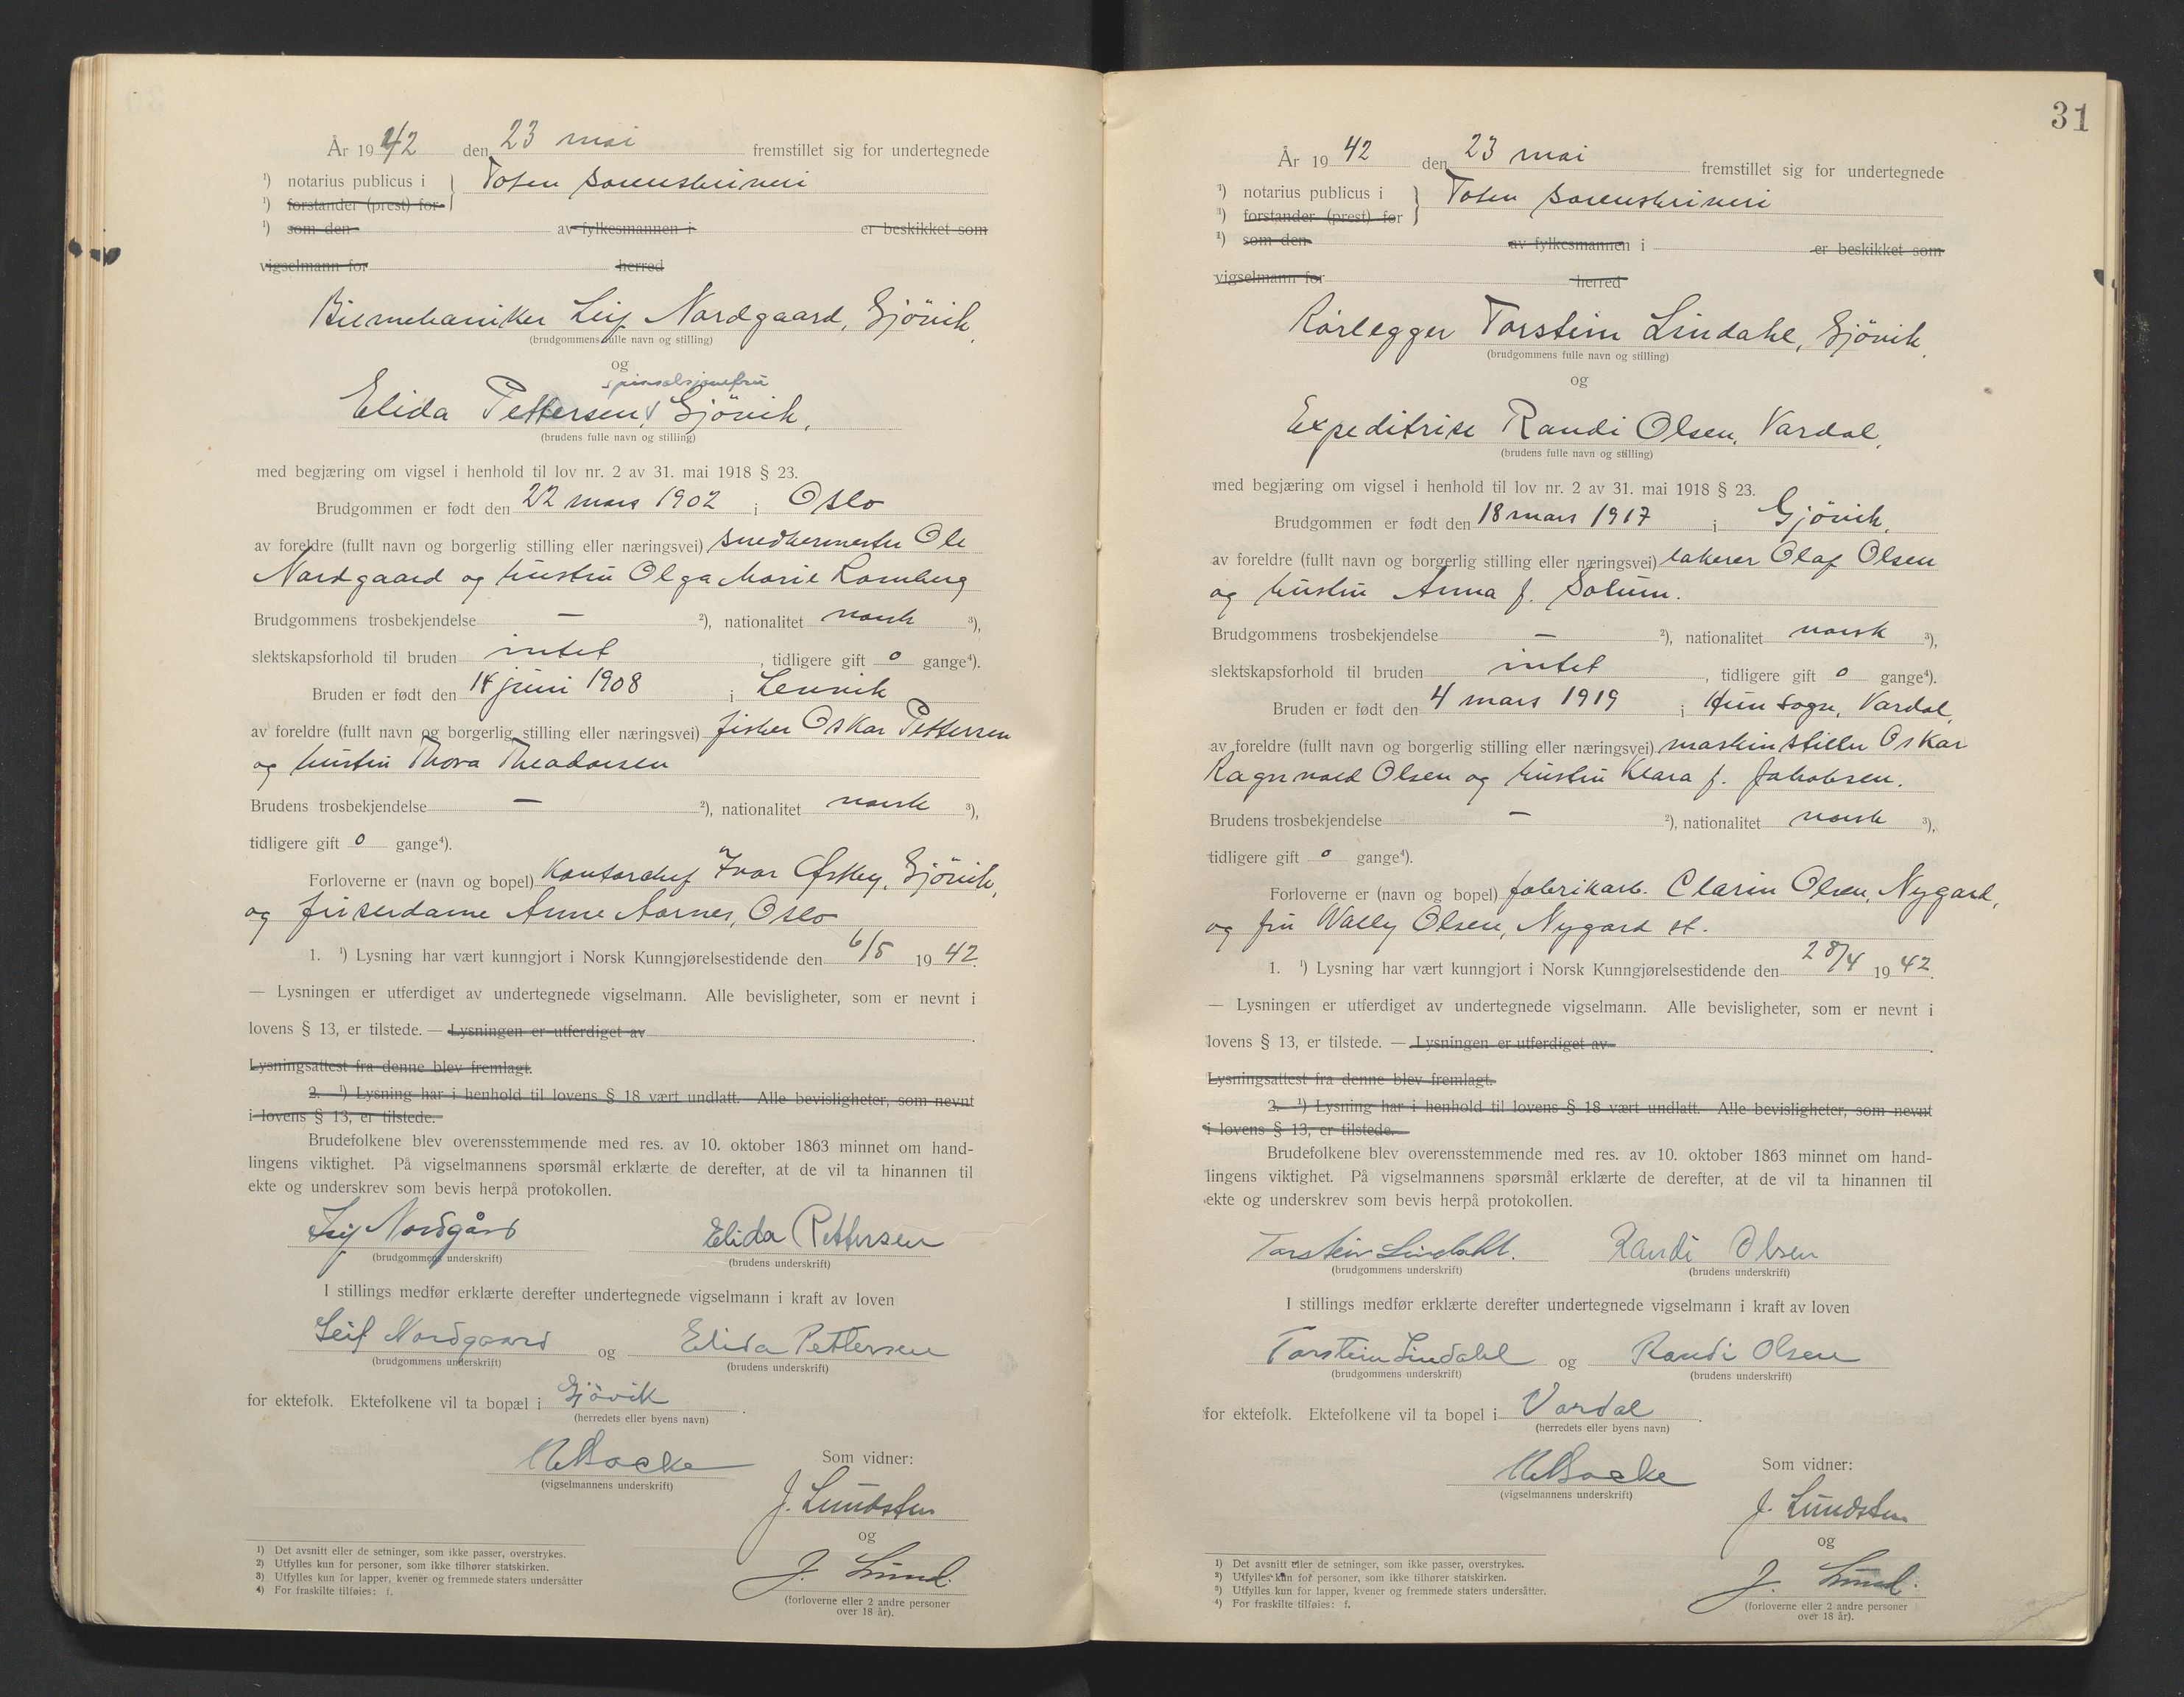 År 1942 den 23 mai fremstillet sig for undertegnede
¹) notarius publicus i } Toten sorenskriveri
¹) forstander (prest) for
¹) som den av fylkesmannen i er beskikket som
vigselmann for herred
Bilmekaniker Leif Nordgaard, Gjövik,
(brudgommens fulle navn og stilling)
og
Elida Pettersen, Gjövik,
(brudens fulle navn og stilling)
med begjæring om vigsel i henhold til lov nr. 2 av 31. mai 1918 § 23.
Brudgommen er født den 22 mars 1902 i Oslo
av foreldre (fullt navn og borgerlig stilling eller næringsvei) snedkermester Ole
Nordgaard og hustru Olga Marie
Brudgommens trosbekjendelse — ²), nationalitet norsk ³),
slektskapsforhold til bruden intet, tidligere gift 0 gange⁴).
Bruden er født den 14 juni 1908 i Lenvik
av foreldre (fullt navn og borgerlig stilling eller næringsvei) fisker Oskar Pettersen
og hustru Thora Theodorsen
Brudens trosbekjendelse — ²), nationalitet norsk ³),
tidligere gift 0 gange⁴).
Forloverne er (navn og bopel) Kontorchef Ivar Gjövik,
og frisørdame Anne Aarnes, Oslo
1. ¹) Lysning har vært kunngjort i Norsk Kunngjørelsestidende den 6/5 1942.
— Lysningen er utferdiget av undertegnede vigselmann. Alle bevisligheter, som er nevnt i
lovens § 13, er tilstede. — Lysningen er utferdiget av .
Lysningsattest fra denne blev fremlagt.
2. ¹) Lysning har i henhold til lovens § 18 vært undlatt. Alle bevisligheter, som nevnt
i lovens § 13, er tilstede.
Brudefolkene blev overensstemmende med res. av 10. oktober 1863 minnet om hand-
lingens viktighet. På vigselmannens spørsmål erklærte de derefter, at de vil ta hinannen til
ekte og underskrev som bevis herpå protokollen.
Leif Nordgård Elida Pettersen
(brudgommens underskrift) (brudens underskrift)
I stillings medfør erklærte derefter undertegnede vigselmann i kraft av loven
Leif Nordgaard og Elida Pettersen
(brudgommens underskrift) (brudens underskrift)
for ektefolk. Ektefolkene vil ta bopæl i Gjövik .
(herredets eller byens navn)
(vigselmannens underskrift)
Som vidner:
J. Lundsten
og
J. Lund.
(forloverne eller 2 andre personer
over 18 år).
1) Det avsnitt eller de setninger, som ikke passer, overstrykes.
2) Utfylles kun for personer, som ikke tilhører statskirken.
3) Utfylles kun for lapper, kvener og fremmede staters undersåtter
4) For fraskilte tilføies: f.
31
År 1942 den 23 mai fremstillet sig for undertegnede
¹) notarius publicus i } Toten sorenskriveri
¹) forstander (prest) for
¹) som den av fylkesmannen i er beskikket som
vigselmann for herred
Rørlegger Torstein Lindahl, Gjövik,
(brudgommens fulle navn og stilling)
og
Expeditrise Randi Olsen, Vardal,
(brudens fulle navn og stilling)
med begjæring om vigsel i henhold til lov nr. 2 av 31. mai 1918 § 23.
Brudgommen er født den 18 mars 1917 i Gjövik,
av foreldre (fullt navn og borgerlig stilling eller næringsvei) lakerer Olaf Olsen
og hustru Anna f. Solum.
Brudgommens trosbekjendelse — ²), nationalitet norsk ³),
slektskapsforhold til bruden intet, tidligere gift 0 gange⁴).
Bruden er født den 4 mars 1919 i Hunn sogn, Vardal,
av foreldre (fullt navn og borgerlig stilling eller næringsvei) maskinstiller Oskar
Ragnvald Olsen og hustru Klara f. Jakobsen.
Brudens trosbekjendelse — ²), nationalitet norsk ³),
tidligere gift 0 gange⁴).
Forloverne er (navn og bopel) fabrikarb. Clarin Olsen, Nygard,
og fru Wally Olsen, Nygard st.
1. ¹) Lysning har vært kunngjort i Norsk Kunngjørelsestidende den 28/4 1942.
— Lysningen er utferdiget av undertegnede vigselmann. Alle bevisligheter, som er nevnt i
lovens § 13, er tilstede. — Lysningen er utferdiget av .
Lysningsattest fra denne blev fremlagt.
2. ¹) Lysning har i henhold til lovens § 18 vært undlatt. Alle bevisligheter, som nevnt
i lovens § 13, er tilstede.
Brudefolkene blev overensstemmende med res. av 10. oktober 1863 minnet om hand-
lingens viktighet. På vigselmannens spørsmål erklærte de derefter, at de vil ta hinannen til
ekte og underskrev som bevis herpå protokollen.
Torstein Lindahl. Randi Olsen
(brudgommens underskrift) (brudens underskrift)
I stillings medfør erklærte derefter undertegnede vigselmann i kraft av loven
Torstein Lindahl og Randi Olsen
(brudgommens underskrift) (brudens underskrift)
for ektefolk. Ektefolkene vil ta bopel i Vardal .
(herredets eller byens navn)
(vigselmannens underskrift)
Som vidner:
J. Lundsten
og
J. Lund.
(forloverne eller 2 andre personer
over 18 år).
1) Det avsnitt eller de setninger, som ikke passer, overstrykes.
2) Utfylles kun for personer, som ikke tilhører statskirken.
3) Utfylles kun for lapper, kvener og fremmede staters undersåtter.
4) For fraskilte tilføies: f.